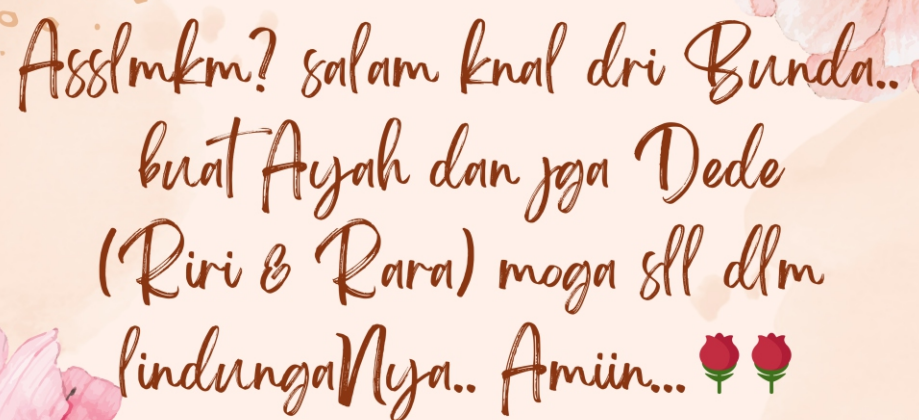 Asslmkm? salam knal dri Bunda..
buat Ayah dan jga Dede
(Riri & Rara) moga sll dlm
lindungaNya.. Amiin...🌹🌹